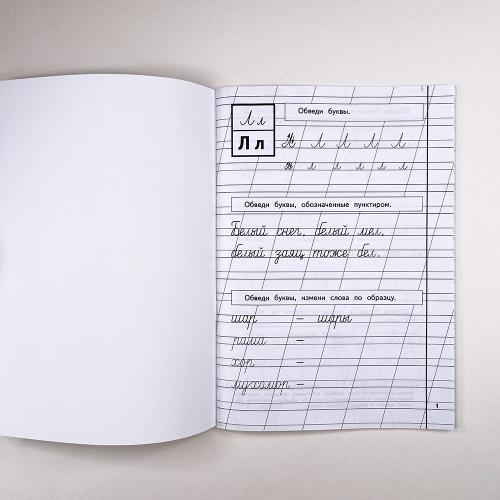 Лл
Лл
Обведи буквы.
Л Л Л Л Л
л л л л л л
Обведи буквы, обозначенные пунктиром.
Белый снег, белый мел,
белый заяц тоже бел.
Обведи буквы, измени слова по образцу.
шар – шары
рама –
хор –
мухомор –
1